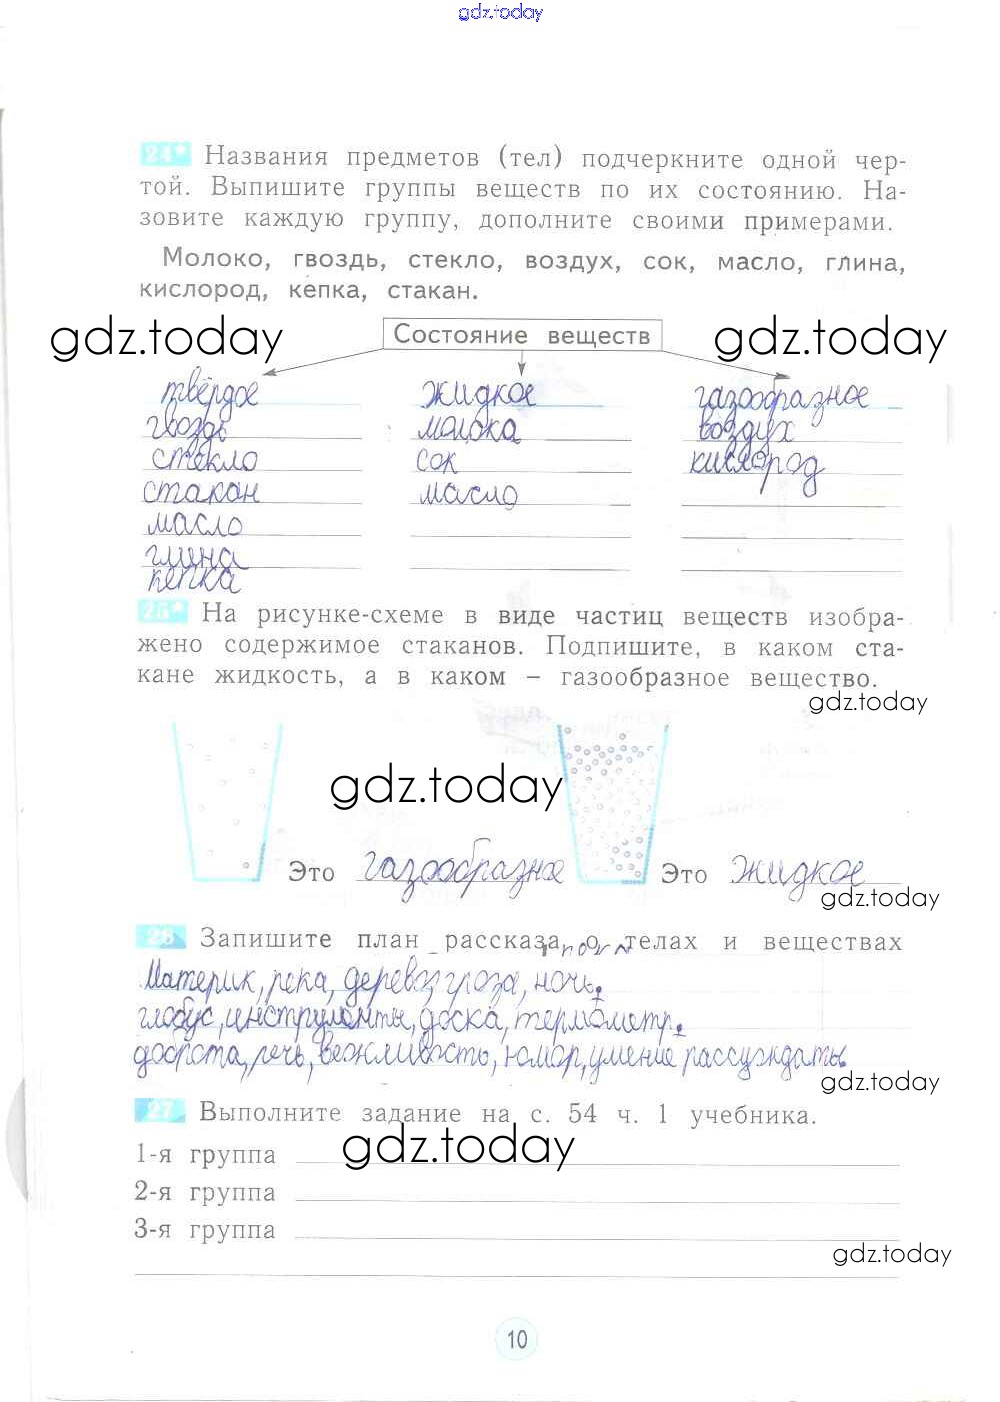 gdz.today
24* Названия предметов (тел) подчеркните одной чер-
той. Выпишите группы веществ по их состоянию. На-
зовите каждую группу, дополните своими примерами.
Молоко, гвоздь, стекло, воздух, сок, масло, глина,
кислород, кепка, стакан.
gdz.today Состояние веществ gdz.today
твёрдое жидкое газообразное
гвоздь молока воздух
стекло сок кислород
стакан масло
масло
глина
кепка
25* На рисунке-схеме в виде частиц веществ изобра-
жено содержимое стаканов. Подпишите, в каком ста-
кане жидкость, а в каком – газообразное вещество.
gdz.today
gdz.today
Это газообразное Это жидкое
gdz.today
26 Запишите план рассказа о телах и веществах
Материк, река, дерево, гроза, ночь.
глобус, инструменты, доска, термометр.
доброта, речь, вежливость, юмор, умение рассуждать.
gdz.today
27 Выполните задание на с. 54 ч. 1 учебника.
gdz.today
1-я группа
2-я группа
3-я группа
gdz.today
10